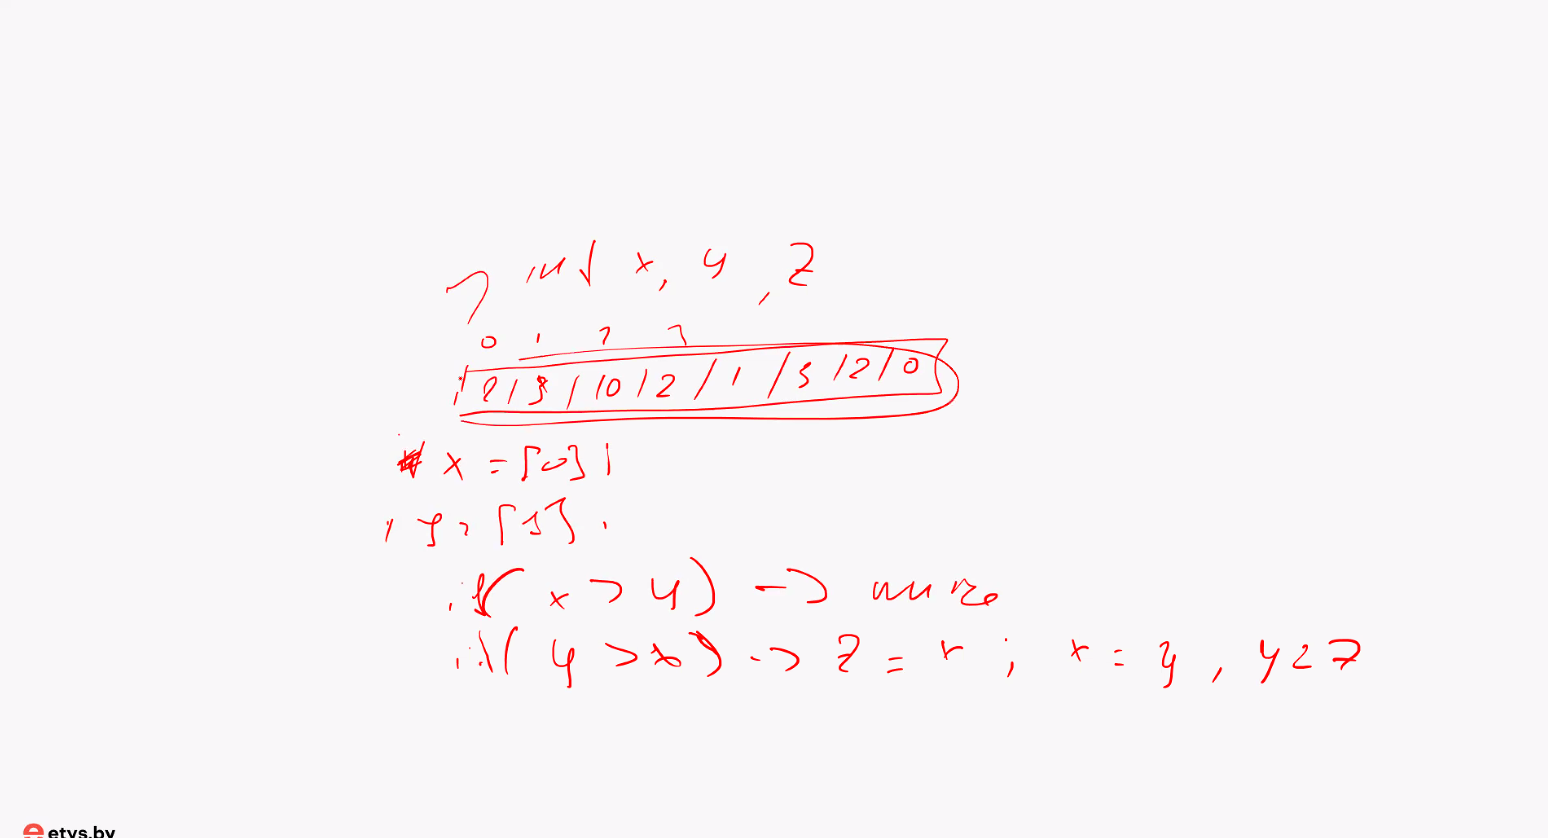 int x, y, z
0 1 2 3
2 / 3 / 10 / 2 / 1 / 3 / 2 / 0
x = [0]
y = [1]
if ( x > y ) ->
if ( y > x ) -> z = x ; x = y , y = z
etys.by